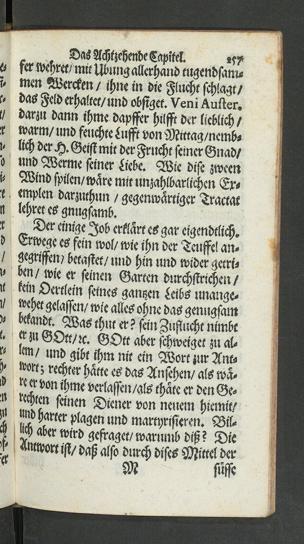 Das Achtzehende Capitel. 257
fer wehret/ mit Ubung allerhand tugendsam-
men Wercken/ ihne in die Flucht schlagt/
das Feld erhaltet/ und obsiget. Veni Auster.
darzu dann ihme dapffer hilfft der lieblich/
warm/ und feuchte Lufft von Mittag/ nemb-
lich der H. Geist mit der Frucht seiner Gnad/
und Werme seiner Liebe. Wie dise zween
Wind spilen/ wäre mit unzahlbarlichen Ex-
emplen darzuthun/ gegenwärtiger Tractat
lehret es gnugsamb.
Der einige Job erklärt es gar eigendtlich.
Erwege es fein wol/ wie ihn der Teuffel an-
gegriffen/ betastet/ und hin und wider getri-
ben/ wie er seinen Garten durchstrichen/
kein Oertlein seines gantzen Leibs unange-
wehet gelassen/ wie alles ohne das genugsam
bekandt. Was thut er? sein Zuflucht nimbt
er zu GOtt/ ꝛc. GOtt aber schweiget zu al-
lem/ und gibt ihm nit ein Wort zur Ant-
wort; rechter hätte es das Ansehen/ als wä-
re er von ihme verlassen/ als thäte er den Ge-
rechten seinen Diener von neuem hiemit/
und harter plagen und martyrisieren. Bil-
lich aber wird gefraget/ warumb diß? Die
Antwort ist/ daß also durch dises Mittel der
M süsse